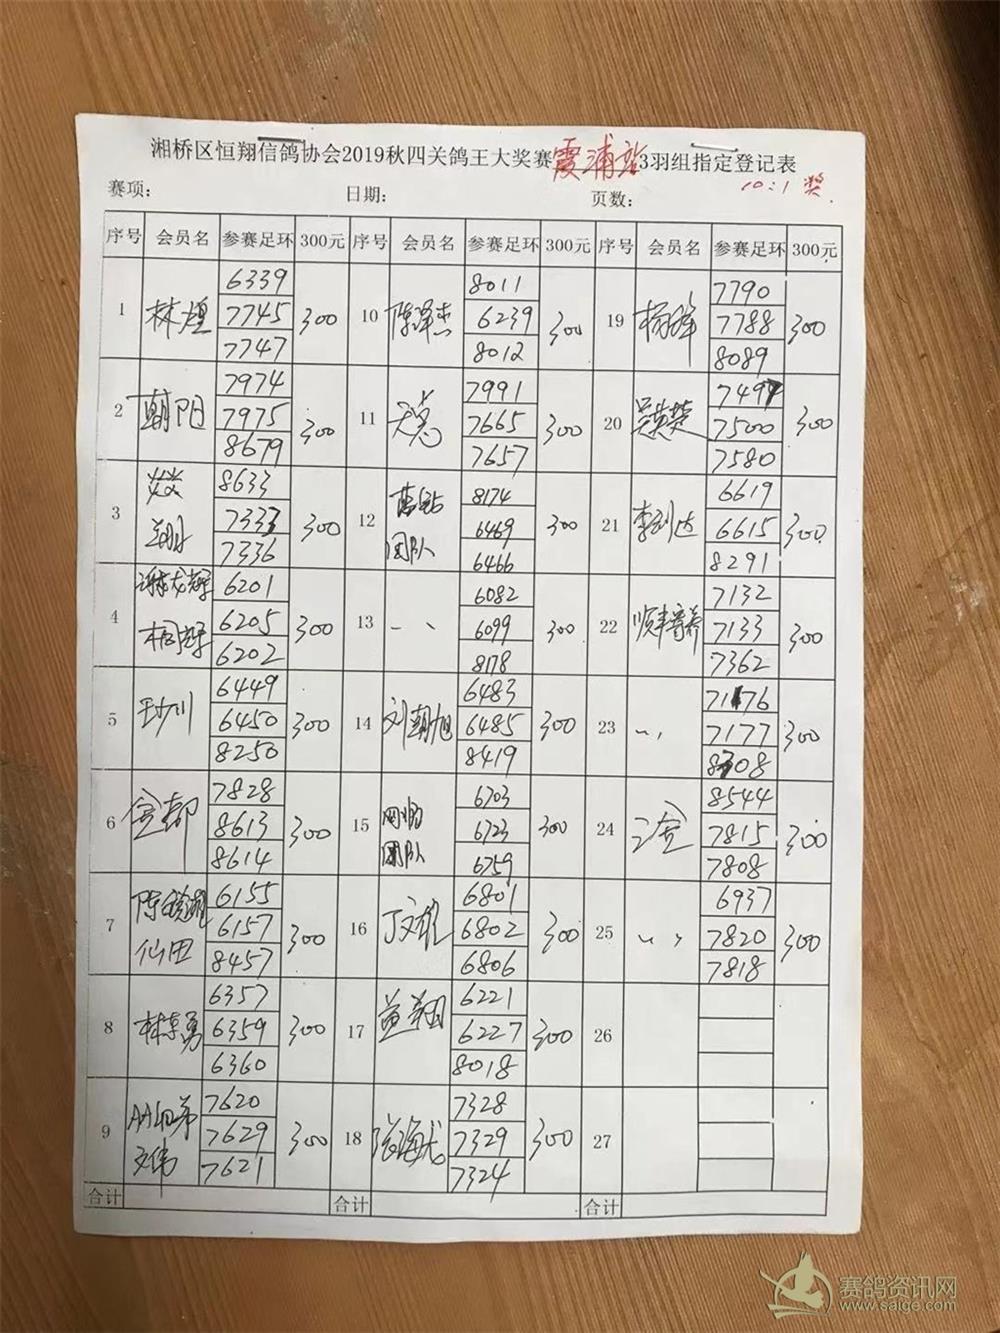 湘桥区恒翔信鸽协会2019秋四关鸽王大奖赛霞浦站3羽组指定登记表
10:1奖.
赛项: 日期: 页数:
序号 会员名 参赛足环 300元 序号 会员名 参赛足环 300元 序号 会员名 参赛足环 300元
1 林煌 6339 7745 7747 300 10 陈泽杰 8011 6239 8012 300 19 杨锋 7790 7788 8089 300
2 朝阳 7974 7975 8679 300 11 天意 7991 7665 7657 300 20 吴黄楚 7497 7500 7580 300
3 8633 7333 7336 300 12 团队 8174 6469 6466 300 21 李列达 6619 6615 8291 300
4 6201 6205 6202 300 13 、、 6082 6099 8178 300 22 顺丰 7132 7133 7362 300
5 6449 6450 8250 300 14 刘朝旭 6483 6485 8419 300 23 、、 7176 7177 8308 300
6 金都 7828 8613 8614 300 15 团队 6703 6723 6759 300 24 7815 8544 7808 300
7 仙田 6155 6157 8457 300 16 丁文雄 6801 6802 6806 300 25 、、 6937 7820 7818 300
8 林勇 6357 6359 6360 300 17 益翔 6221 6227 8018 300 26
9 AA兄弟 文伟 7620 7629 7621 300 18 海龙 7328 7329 7324 300 27
合计 合计 合计
赛鸽资讯网
www.saige.com